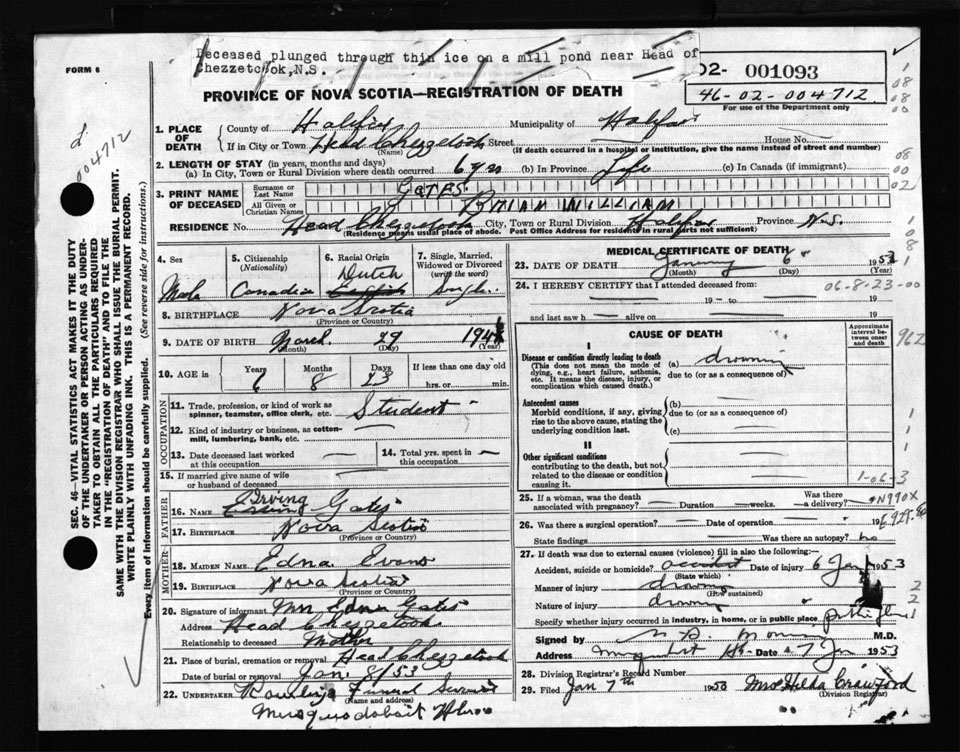 Deceased plunged through thin ice on a mill pond near Head of
Chezzetcook,N.S.
FORM 6
02- 001093
46-02-004712
For use of the Department only
PROVINCE OF NOVA SCOTIA—REGISTRATION OF DEATH
004712
SEC. 46—VITAL STATISTICS ACT MAKES IT THE DUTY
OF THE UNDERTAKER OR PERSON ACTING AS UNDER-
TAKER TO OBTAIN ALL THE PARTICULARS REQUIRED
IN THE "REGISTRATION OF DEATH" AND TO FILE THE
SAME WITH THE DIVISION REGISTRAR WHO SHALL ISSUE THE BURIAL PERMIT.
WRITE PLAINLY WITH UNFADING INK. THIS IS A PERMANENT RECORD.
Every item of information should be carefully supplied. (See reverse side for instructions.)
1. PLACE OF DEATH
County of Halifax Municipality of Halifax
If in City or Town Head Chezzetcook Street House No.
(Name) (If death occurred in a hospital or institution, give the name instead of street and number)
2. LENGTH OF STAY (in years, months and days)
(a) In City, Town or Rural Division where death occurred 6 yrs (b) In Province Life (c) In Canada (if immigrant)
3. PRINT NAME OF DECEASED
Surname or Last Name GATES
All Given or Christian Names WILLIAM
RESIDENCE No. Head Chezzetcook City, Town or Rural Division Halifax Province N.S.
(Residence means usual place of abode. Post Office Address for residents in rural parts not sufficient)
4. Sex
Male
5. Citizenship
(Nationality)
Canadian
6. Racial Origin
Dutch
English
7. Single, Married,
Widowed or Divorced
(write the word)
Single
8. BIRTHPLACE Nova Scotia
(Province or Country)
9. DATE OF BIRTH March 29 194
(Month) (Day) (Year)
10. AGE in
Years Months Days If less than one day old
6 8 23 hrs. or min.
OCCUPATION
11. Trade, profession, or kind of work as
spinner, teamster, office clerk, etc. Student
12. Kind of industry or business, as cotton-
mill, lumbering, bank, etc.
13. Date deceased last worked
at this occupation
14. Total yrs. spent in
this occupation
15. If married give name of wife
or husband of deceased
FATHER
16. NAME Irving Gates
17. BIRTHPLACE Nova Scotia
(Province or Country)
MOTHER
18. MAIDEN NAME Edna Evans
19. BIRTHPLACE Nova Scotia
(Province or Country)
20. Signature of informant Mrs Edna Gates
Address Head Chezzetcook
Relationship to deceased Mother
21. Place of burial, cremation or removal Head Chezzetcook
Date of burial or removal Jan. 8/53
22. UNDERTAKER Funeral Service
(Name and address)
Musquodoboit Hbr
MEDICAL CERTIFICATE OF DEATH
23. DATE OF DEATH January 6 1953
(Month) (Day) (Year)
24. I HEREBY CERTIFY that I attended deceased from: 06-8-23-00
19 to 19
and last saw h alive on 19
CAUSE OF DEATH
Approximate
interval be-
tween onset
and death
962
I
Disease or condition directly leading to death
(This does not mean the mode of
dying, e.g., heart failure, asthenia,
etc. It means the disease, injury, or
complication which caused death.)
(a) drowning
due to (or as a consequence of)
Antecedent causes
Morbid conditions, if any, giving
rise to the above cause, stating the
underlying condition last.
(b)
due to (or as a consequence of)
(c)
II
Other significant conditions
contributing to the death, but not
related to the disease or condition
causing it.
1-06-3
25. If a woman, was the death
associated with pregnancy? Duration weeks. Was there a delivery?
N990X
26. Was there a surgical operation? Date of operation 19
E929.
State findings Was there an autopsy? no
27. If death was due to external causes (violence) fill in also the following:-
Accident, suicide or homicide? accident Date of injury 6 Jan 1953
(State which)
Manner of injury drowning
(How sustained)
Nature of injury drowning
Specify whether injury occurred in industry, in home, or in public place
Signed by M.D.
Address Date 7 Jan 1953
28. Division Registrar's Record Number
29. Filed Jan 7th 1953 Mrs Hilda Crawford
(Division Registrar)